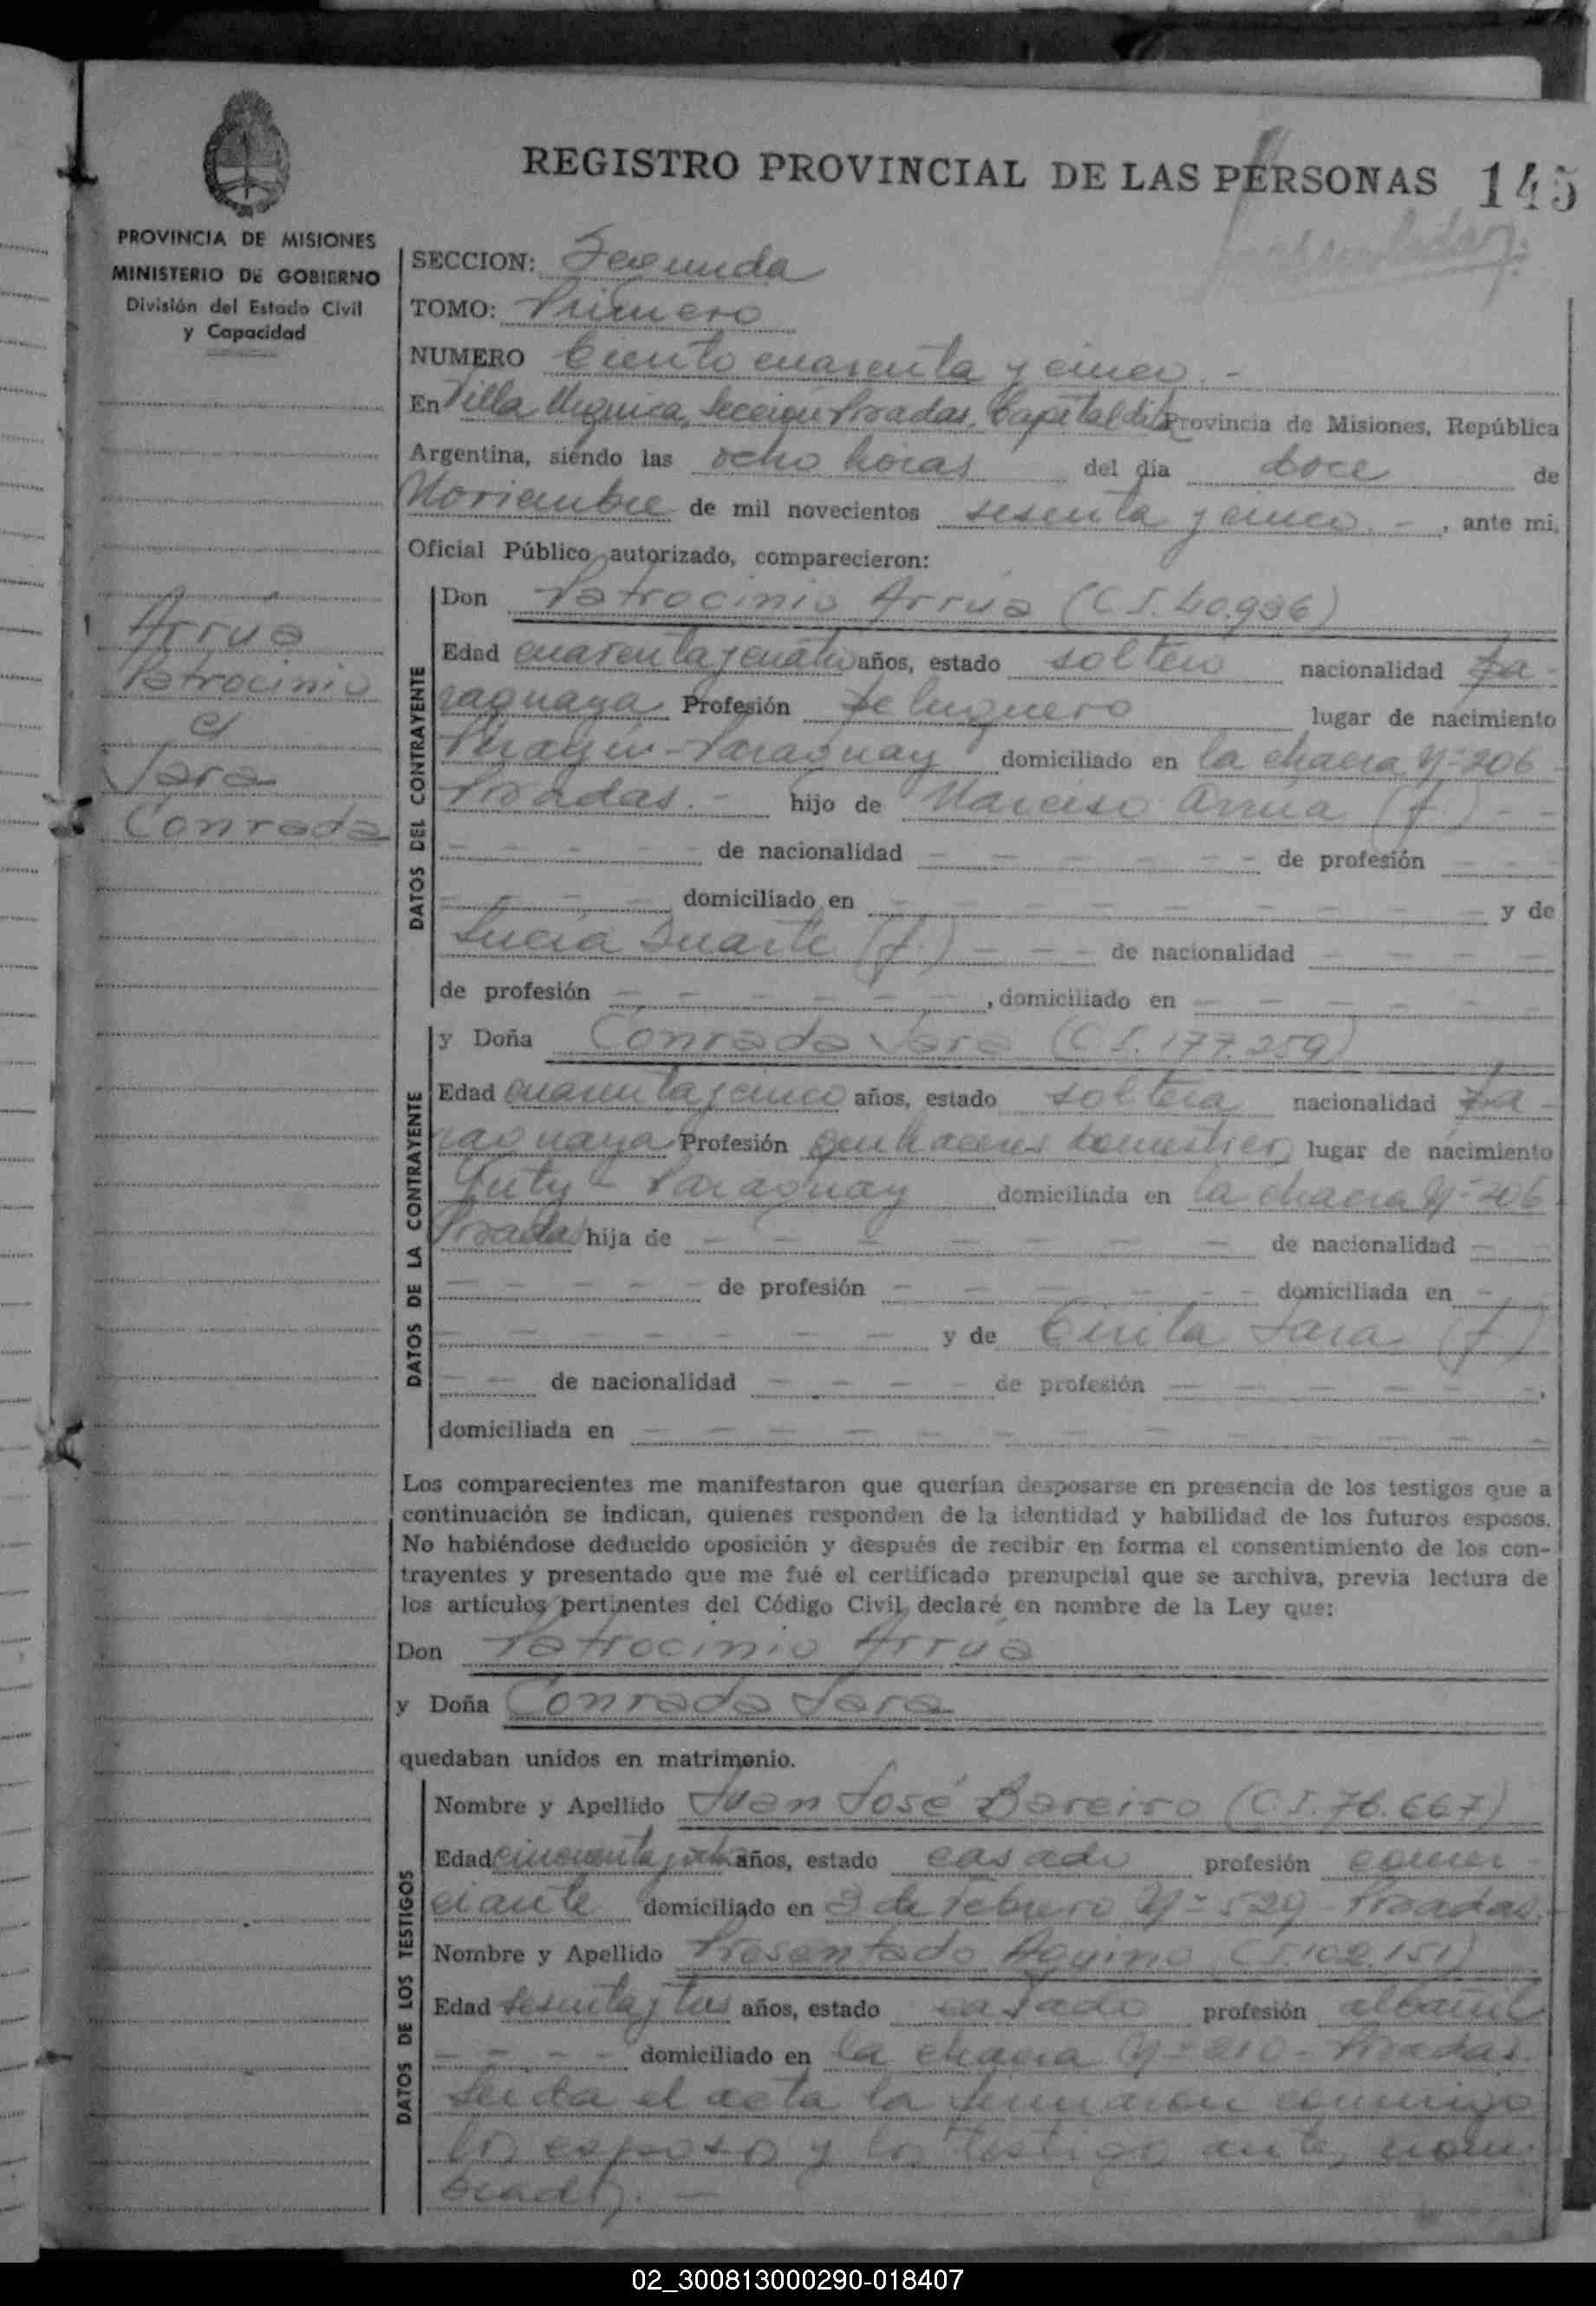 REGISTRO PROVINCIAL DE LAS PERSONAS 145
PROVINCIA DE MISIONES
MINISTERIO DE GOBIERNO
División del Estado Civil
y Capacidad
SECCION: Segunda
TOMO: Primero
NUMERO Ciento cuarenta y cinco. -
En Villa Urquiza, Sección Posadas, Capital de la Provincia de Misiones, República
Argentina, siendo las ocho horas del día doce de
Noviembre de mil novecientos sesenta y cinco. - , ante mi,
Oficial Público autorizado, comparecieron:
Arrúa
Patrocinio
c/
Jara
Conrada
DATOS DEL CONTRAYENTE
Don Patrocinio Arrúa (C.I. 40.996)
Edad cuarenta y cuatro años, estado soltero nacionalidad Pa-
raguaya Profesión Peluquero lugar de nacimiento
- Paraguay domiciliado en la chacra Nº 206
Posadas. - hijo de Narciso Arrúa (f.) - -
- - - - - de nacionalidad - - - - - - - de profesión - - -
- - - - domiciliado en - - - - - - - - y de
Lucia Duarte (f.) - - - de nacionalidad - - - -
de profesión - - - - - - , domiciliado en - - - - -
DATOS DE LA CONTRAYENTE
y Doña Conrada Jara (C.I. 177.259)
Edad cuarenta y cinco años, estado soltera nacionalidad Pa-
raguaya Profesión quehaceres domésticos lugar de nacimiento
Yuty - Paraguay domiciliada en la chacra Nº 206
Posadas hija de - - - - - - - de nacionalidad - -
- - - - - - de profesión - - - - - domiciliada en - -
- - - - - - - y de Cirila Jara (f)
- - de nacionalidad - - - - de profesión - - - - - - ,
domiciliada en - - - - - - - - - - - -
Los comparecientes me manifestaron que querían desposarse en presencia de los testigos que a
continuación se indican, quienes responden de la identidad y habilidad de los futuros esposos.
No habiéndose deducido oposición y después de recibir en forma el consentimiento de los con-
trayentes y presentado que me fué el certificado prenupcial que se archiva, previa lectura de
los artículos pertinentes del Código Civil, declaré en nombre de la Ley que:
Don Patrocinio Arrúa
y Doña Conrada Jara
quedaban unidos en matrimonio.
DATOS DE LOS TESTIGOS
Nombre y Apellido Juan José Bareiro (C.I. 76.667)
Edad cincuenta y años, estado casado profesión comer-
ciante domiciliado en 3 de Febrero Nº 529 - Posadas.
Nombre y Apellido Presentado Aquino (C.I. 102.151)
Edad sesenta y tres años, estado casado profesión albañil
- - - - domiciliado en la chacra Nº 210 - Posadas.
Leida el acta la firmaron conmigo
los esposos y los testigos antes nom-
brados. -
02_300813000290-018407